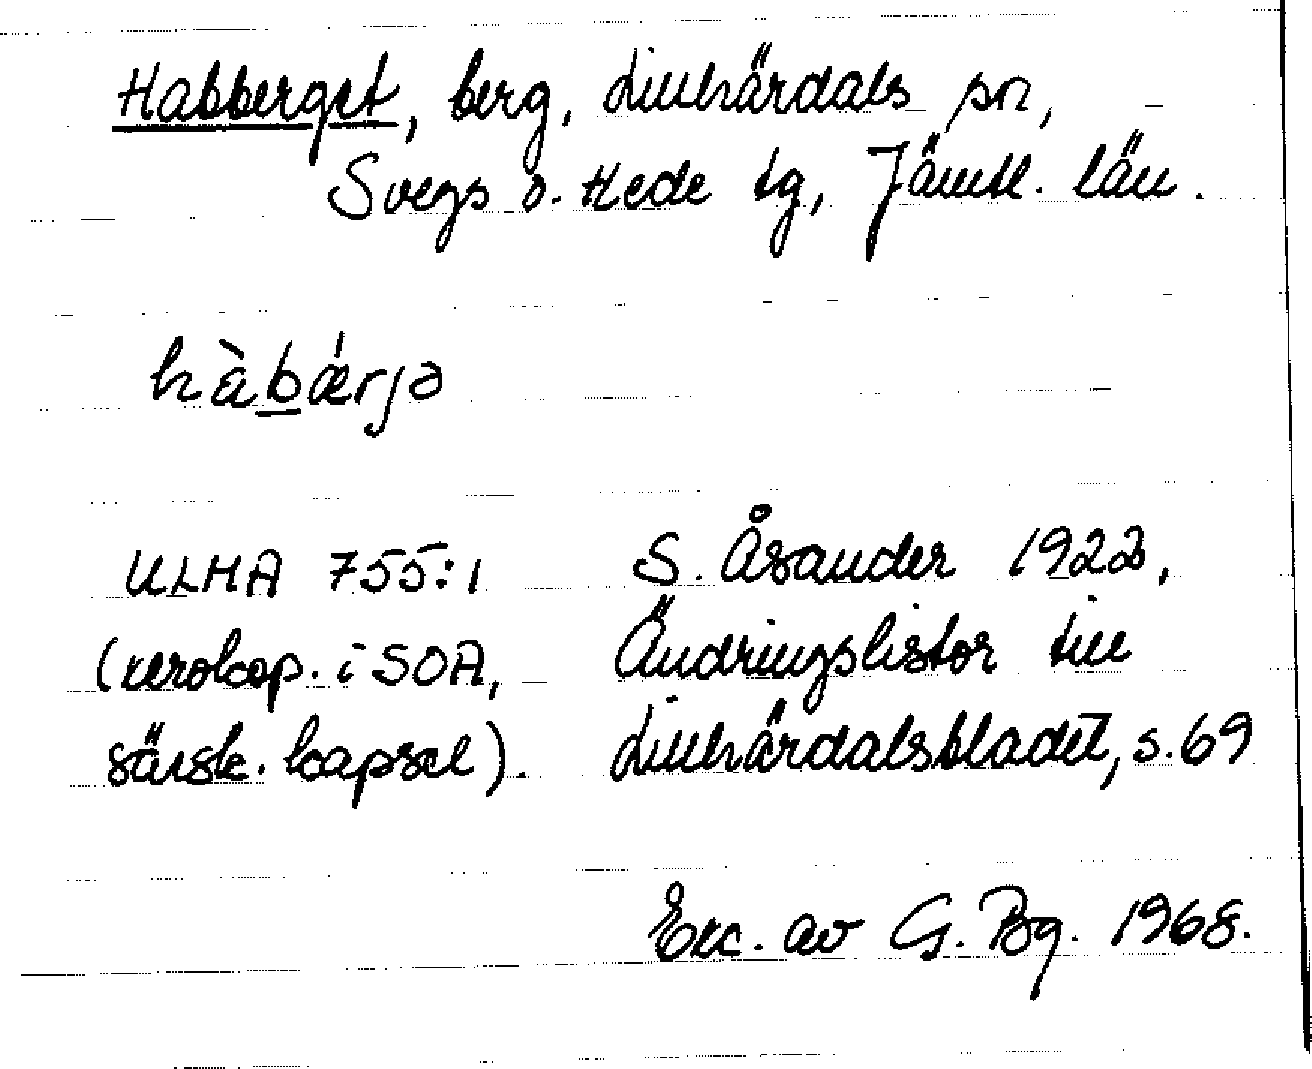 Habberget, berg, Lillhärdals sn,
Svegs o. Hede tg, Jämtl. län.
hàbǽrjə
ULMA 755:1 S. Åsander 1922,
(xerokop. i SOA, Ändringslistor till
särsk. kapsel). Lillhärdalsbladet, s. 69
Exc. av G. Bg. 1968.